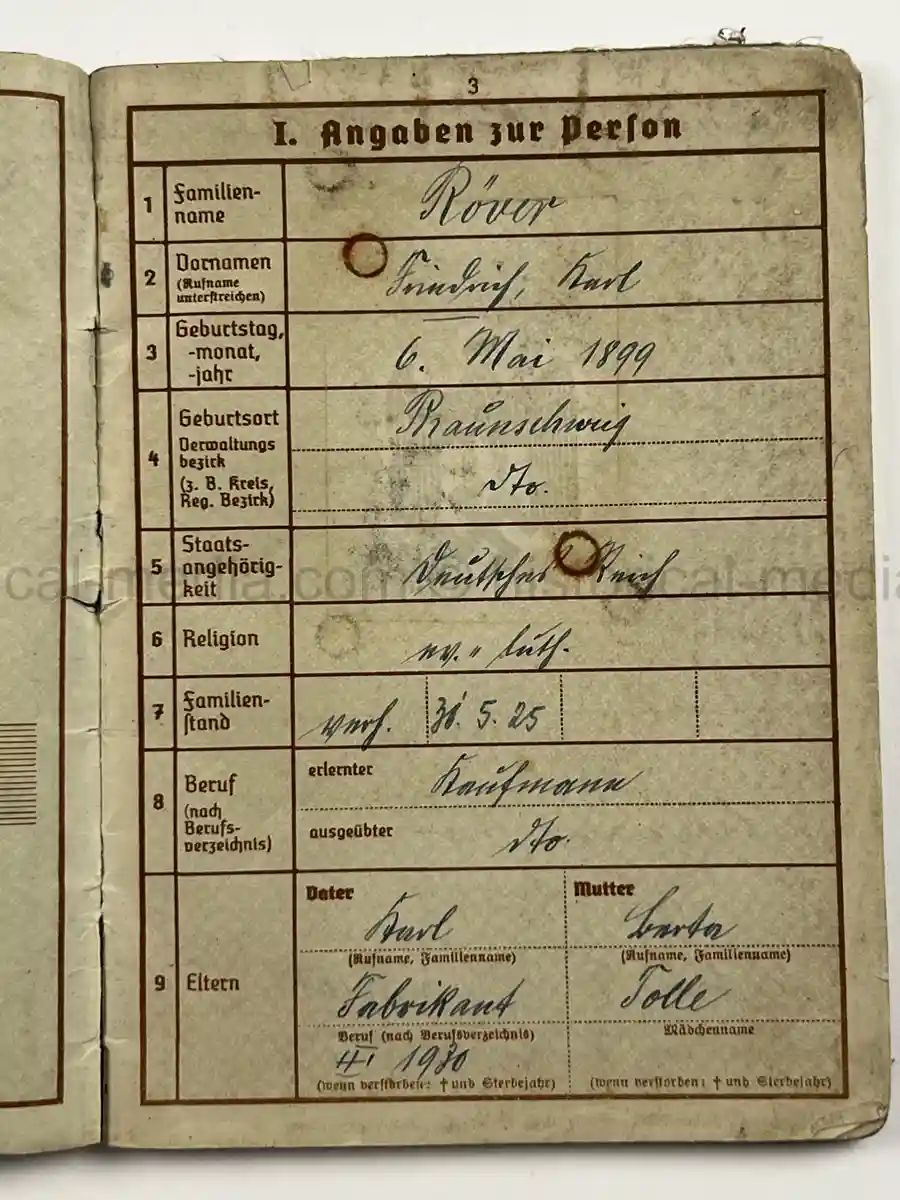 3
I. Angaben zur Person
1 Familien-
name
Röver
2 Vornamen
(Rufname
unterstreichen)
Friedrich, Karl
3 Geburtstag,
-monat,
-jahr
6. Mai 1899
4 Geburtsort
Verwaltungs
bezirk
(z. B. Kreis,
Reg. Bezirk)
Braunschweig
dto.
5 Staats-
angehörig-
keit
Deutsches Reich
6 Religion
ev. luth.
7 Familien-
stand
verh. 5. 25
8 Beruf
(nach
Berufs-
verzeichnis)
erlernter Kaufmann
ausgeübter dto.
9 Eltern
Vater
Karl
(Rufname, Familienname)
Fabrikant
Beruf (nach Berufsverzeichnis)
1930
(wenn verstorben: † und Sterbejahr)
Mutter
Berta
(Rufname, Familienname)
Tolle
Mädchenname
(wenn verstorben: † und Sterbejahr)